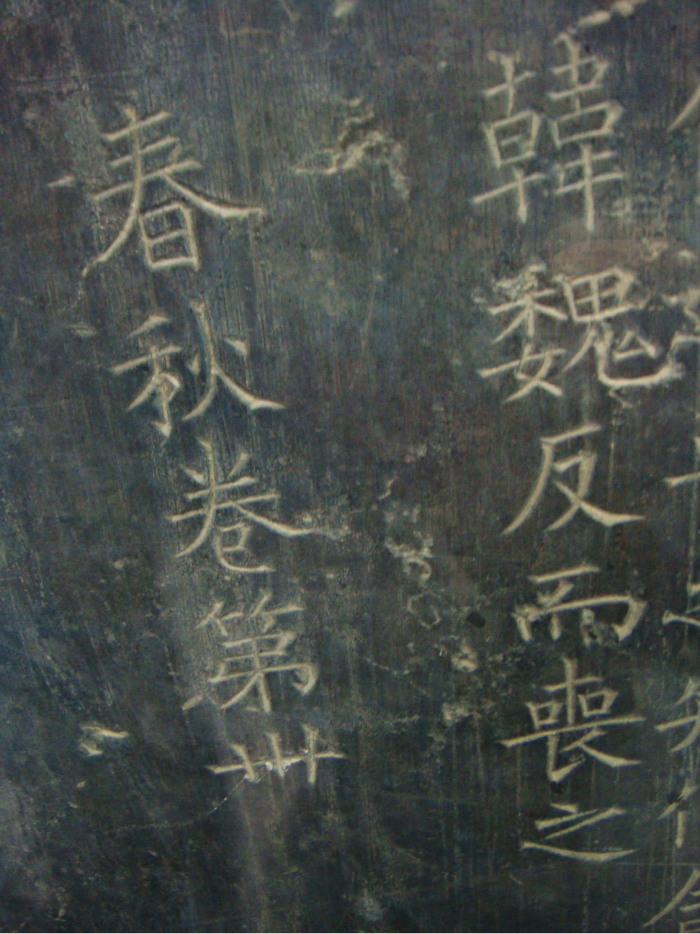 韓魏反而喪之
春秋卷第卅